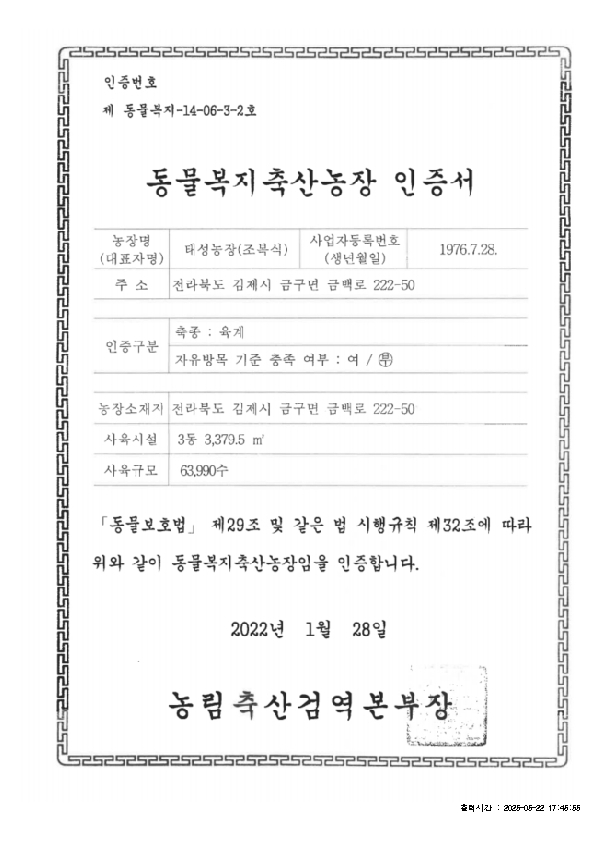 인증번호
제 동물복지-14-06-3-2호
동물복지축산농장 인증서
농장명
(대표자명)
태성농장(조복식)
사업자등록번호
(생년월일)
1976.7.28.
주 소
전라북도 김제시 금구면 금백로 222-50
인증구분
축종 : 육계
자유방목 기준 충족 여부 : 여 / 부
농장소재지
전라북도 김제시 금구면 금백로 222-50
사육시설
3동 3,379.5 ㎡
사육규모
63,990수
「동물보호법」 제29조 및 같은 법 시행규칙 제32조에 따라
위와 같이 동물복지축산농장임을 인증합니다.
2022년 1월 28일
농림축산검역본부장
출력시간 : 2025-05-22 17:45:55